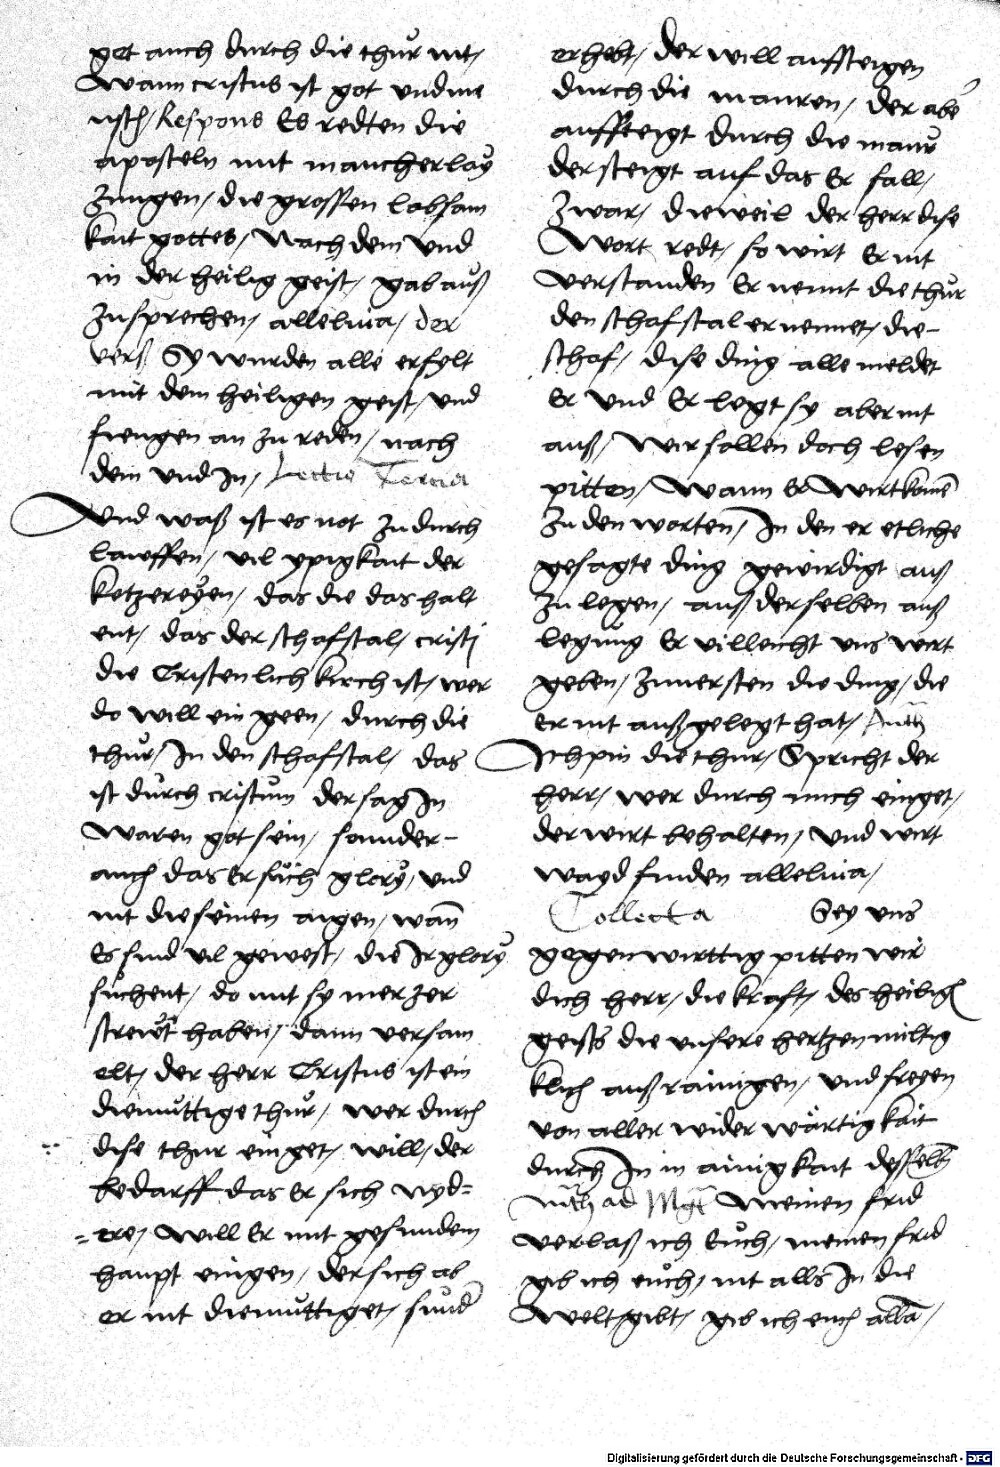 get auch durch die thür nit/
Wann cristus ist got und me
nsch/ Respons Es redten die
aposteln mit mancherlay
zungen/ die grossen lobsam
kait gottes/ Nach dem und
in der heilig geist/ gab auß
zu sprechen/ alleluia/ der
vers Sy wurden alle erfylt
mit dem heiligen geist/ und
fiengen an zu reden/ nach
dem und In/ Lectio Tercia
Und waß ist es not zu durch
lauffen/ vil ypigkait der
ketzereyen/ das die das halt
ent/ das der schafstal/ cristi
die Cristenlich kirch ist/ wer
do will ein geen/ durch die
thür/ In den schafstal/ das
ist durch cristum der sag In
waren got sein/ sonnder-
auch das Er süch glory/ und
nit die seinen aigen/ wan
Es sind vil gewest/ die Ir glory
süchent/ do mit sy mer zer
strewt haben/ dann versam
elt/ der herr Cristus ist ein
diemüttige thür/ wer durch
dise thur einget/ will/ der
bedarff das Er sich nyd=
=ere/ will Er mit gesundem
haupt eingen/ der sich ab
er nit diemüttiget/ sund
erhebt/ der will auffsteigen
durch die mauren/ der abe
auffsteigt durch die maur
der steigt auf das Er fall/
Zwar/ dieweil der herr dise
Wort redt/ so wirt Er nit
verstanden Er nennt die thür
den schafstal er nennet/ die-
schaf/ dise ding alle meldet
Er und Er legt sy aber nit
auß/ Wir sollen doch lesen
pitten/ Wann Er Wirt komen
zu den worten/ In den er etliche
gesagte ding gewirdigt auß
zu legen/ auß derselben auß
legung Er villeicht uns wirt
geben/ zumersten die ding/ die
er nit außgelegt hat/ Anth
Ich pin die thur/ Spricht der
herr/ wer durch mich einget/
der wirt behalten/ und wirt
wayd finden alleluia/
Collecta Sey uns
gegenwirttig pitten wir
dich herr/ die kraft/ des heilig
geists die unsere hertzen miltig
klich auß rainigen/ und freyen
von aller wider wärtigkait
durch In in ainigkait desselb
Anth ad Mgt Meinen frid
verlaß ich Euch/ meinen frid
gib ich euch/ nit alls In die
Welt gibt/ gib ich euch alla/
Digitalisierung gefördert durch die Deutsche Forschungsgemeinschaft - DFG